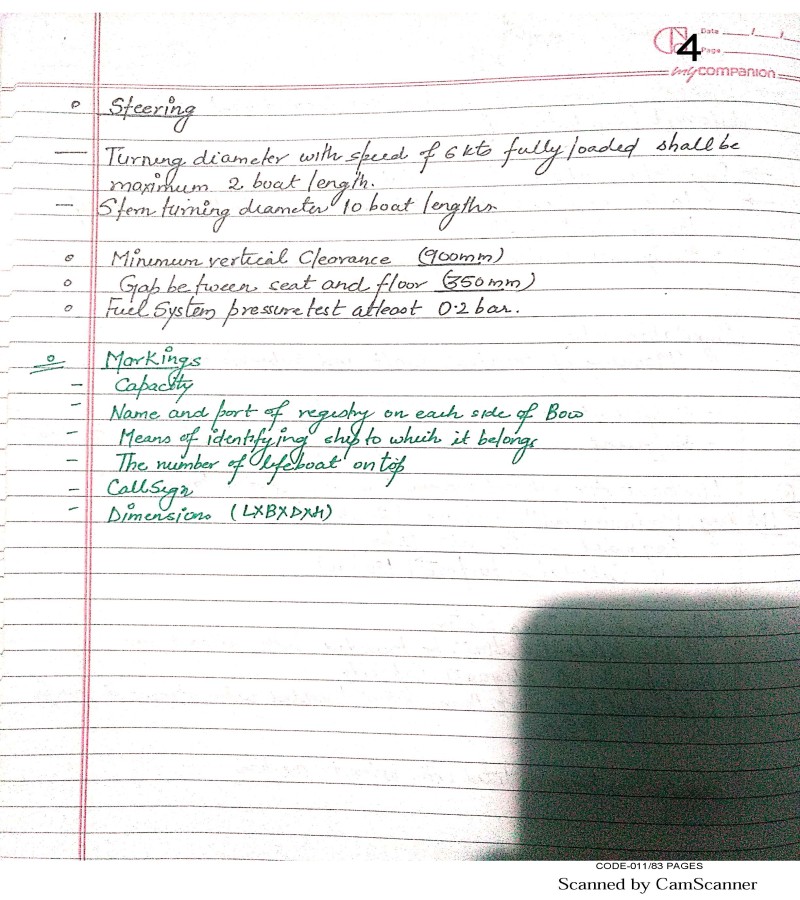 Date
4
Page
mycompanion
Steering
— Turning diameter with speed of 6 kts fully loaded shall be
maximum 2 boat length.
— Stern turning diameter 10 boat lengths
Minimum vertical Clearance (900mm)
Gap between seat and floor (350mm)
Fuel System pressure test atleast 0.2 bar.
Markings
- Capacity
- Name and port of registry on each side of Bow
- Means of identifying ship to which it belongs
- The number of lifeboat on top
- Call Sign
- Dimensions (LXBXDXH)
CODE-011/83 PAGES
Scanned by CamScanner